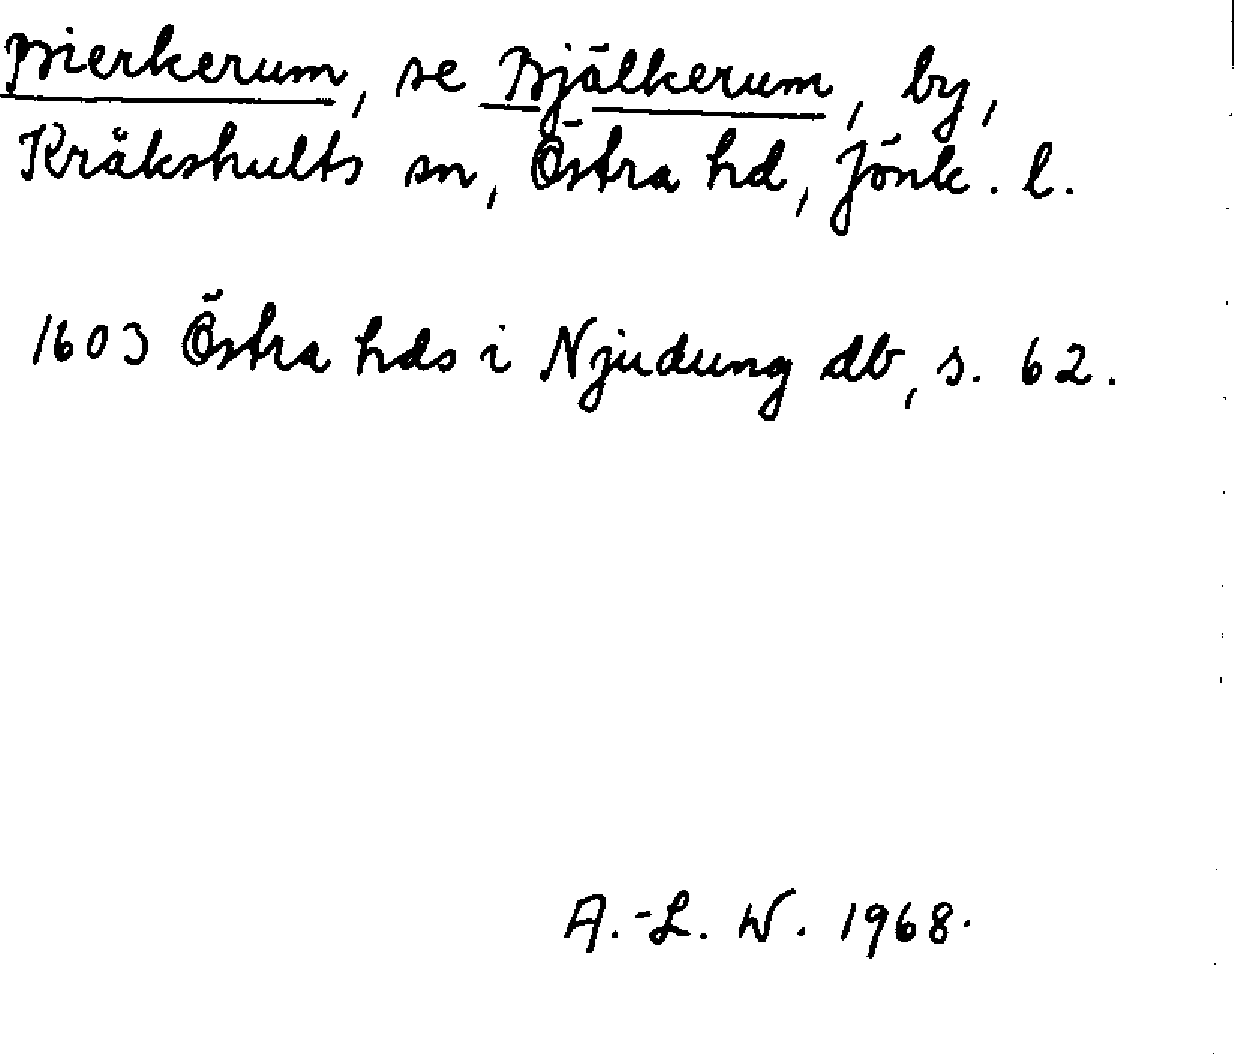 Bierkerum, se Bjälkerum, by,
Kråkshults sn, Östra hd, Jönk. l.
1603 Östra hds i Njudung db, s. 62.
A.-L. W. 1968.